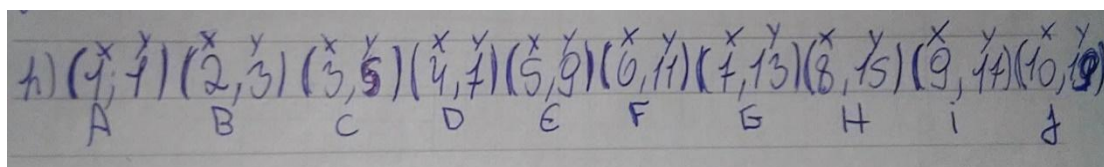 x y x y x y x y x y x y x y x y x y x y
h) (1,1) (2,3) (3,5) (4,7) (5,9) (6,11) (7,13) (8,15) (9,17) (10,19)
A B C D E F G H i J